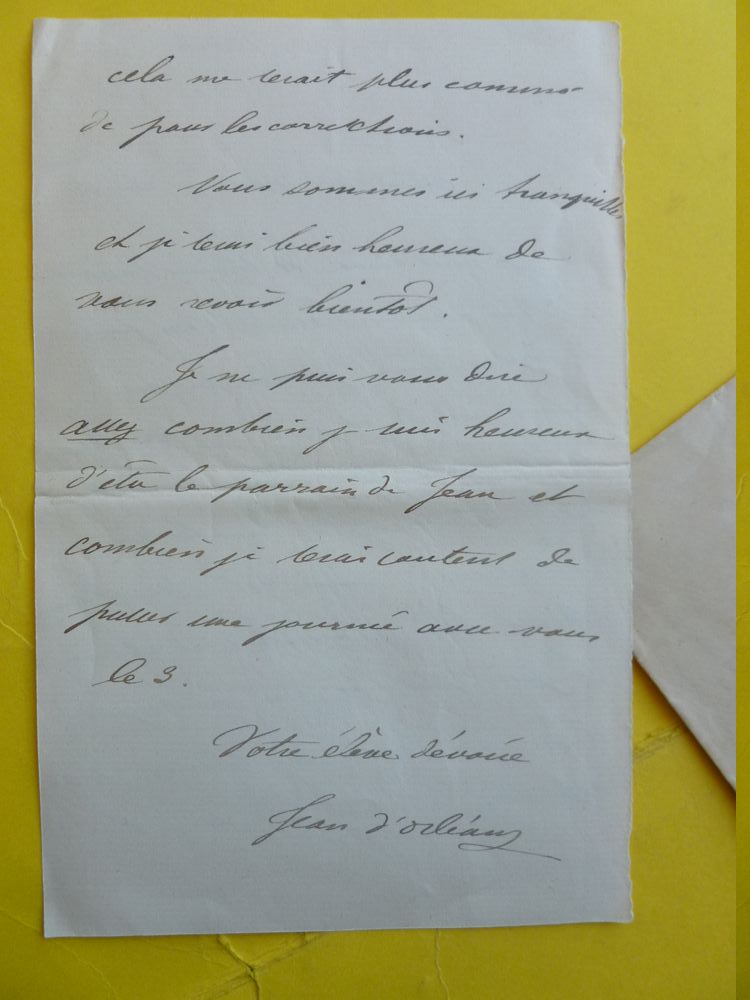 cela me serait plus commo-
de pour les corrections.
Nous sommes ici tranquilles
et je serai bien heureux de
vous revoir bientôt.
Je ne puis vous dire
assez combien je suis heureux
d'être le parrain de Jean et
combien je serai content de
passer une journée avec vous
le 3.
Votre élève dévoué
Jean d'Orléans